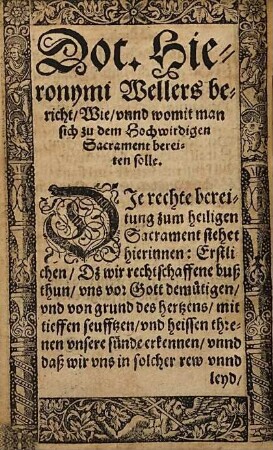 Doct. Hie-
ronymi Wellers be-
richt/ Wie/ vnnd womit man
sich zu dem Hochwirdigen
Sacrament berei-
ten solle.
DIe rechte berei-
tung zum heiligen
Sacrament stehet
hierinnen: Erstli-
chen/ Dz wir rechtschaffene buß
thun/ vns vor Gott demütigen/
vnd von grund des hertzens/ mit
tieffen seufftzen/ vnd heissen thre-
nen vnsere sünde erkennen/ vnnd
daß wir vns in solcher rew vnnd
leyd/